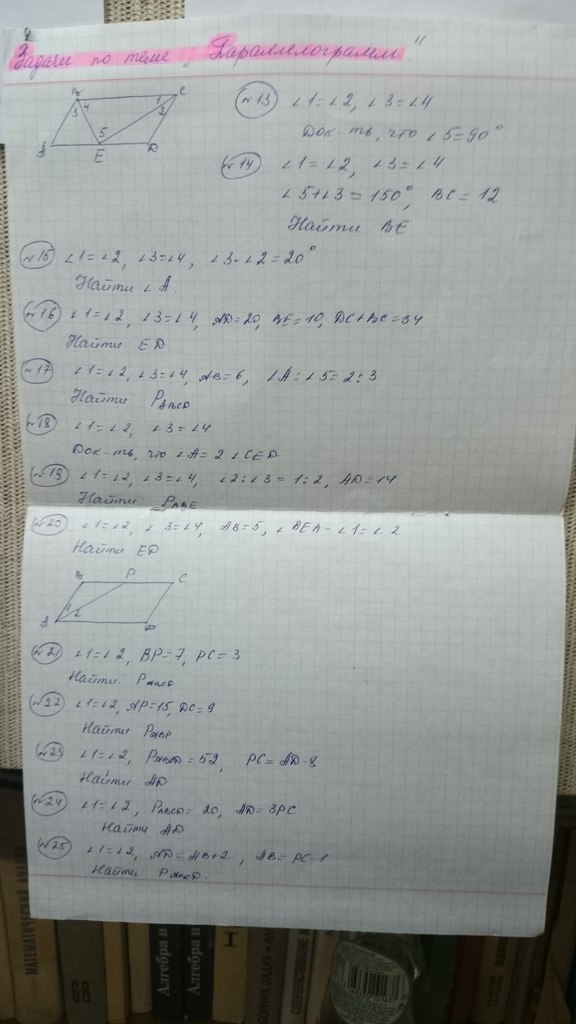 Задачи по теме „Параллелограмм".
B
C
3 4
1
2
5
A
E
D
№13 ∠1=∠2, ∠3=∠4
Док-ть, что ∠5=90°
№14 ∠1=∠2, ∠3=∠4
∠5+∠3=150°, BC=12
Найти BE
№15 ∠1=∠2, ∠3=∠4, ∠3-∠2=20°
Найти ∠A.
№16 ∠1=∠2, ∠3=∠4, AD=20, BE=10, DC+BC=34
Найти ED
№17 ∠1=∠2, ∠3=∠4, AB=6, ∠A:∠5=2:3
Найти PABCD
№18 ∠1=∠2, ∠3=∠4
Док-ть, что ∠A=2∠CED
№19 ∠1=∠2, ∠3=∠4, ∠2:∠3=1:2, AD=14
Найти: PABE
№20 ∠1=∠2, ∠3=∠4, AB=5, ∠BEA-∠1=∠2
Найти ED
B P C
1
2
A
D
№21 ∠1=∠2, BP=7, PC=3
Найти PABCD
№22 ∠1=∠2, AP=15, DC=9
Найти PABP
№23 ∠1=∠2, PABCD=52, PC=AD-8
Найти AD
№24 ∠1=∠2, PABCD=20, AD=3PC
Найти AD
№25 ∠1=∠2, AD=AB+2, AB=PC-1
Найти PABCD.
МАТЕМАТИЧЕСКИЙ
Алгебра и
Алгебра и